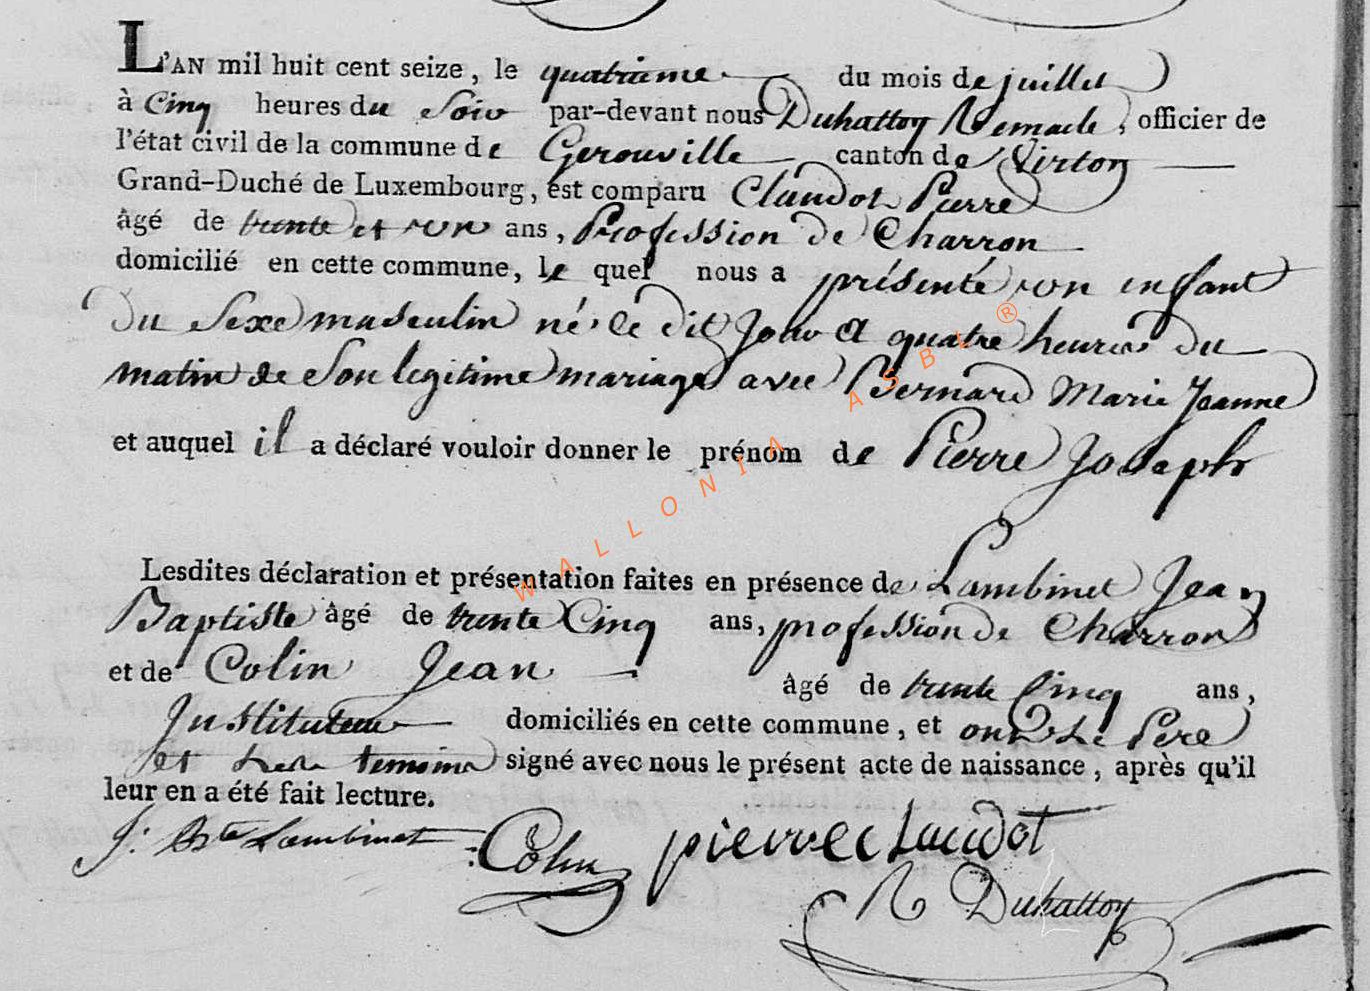 L'AN mil huit cent seize, le quatrieme du mois de juillet
à Cinq heures du Soir par-devant nous Duhattoy Remacle, officier de
l'état civil de la commune de Gerouville canton de Virton
Grand-Duché de Luxembourg, est comparu Claudot Pierre
âgé de trente et un ans, Profession de Charron
domicilié en cette commune, le quel nous a présenté un enfant
Du Sexe masculin né le dit Jour a quatre heures du
matin de Son legitime mariage avec Bernard Marie Jeanne
et auquel il a déclaré vouloir donner le prénom de Pierre Joseph
Lesdites déclaration et présentation faites en présence de Lambinet Jean
Baptiste âgé de trente Cinq ans, profession de Charron
et de Colin Jean âgé de trente Cinq ans,
Instituteur domiciliés en cette commune, et ont Le Pere
et Les temoins signé avec nous le présent acte de naissance, après qu'il
leur en a été fait lecture.
J: Bte Lambinet Colin pierre claudot
R Duhattoy
WALLONIA ASBL ®